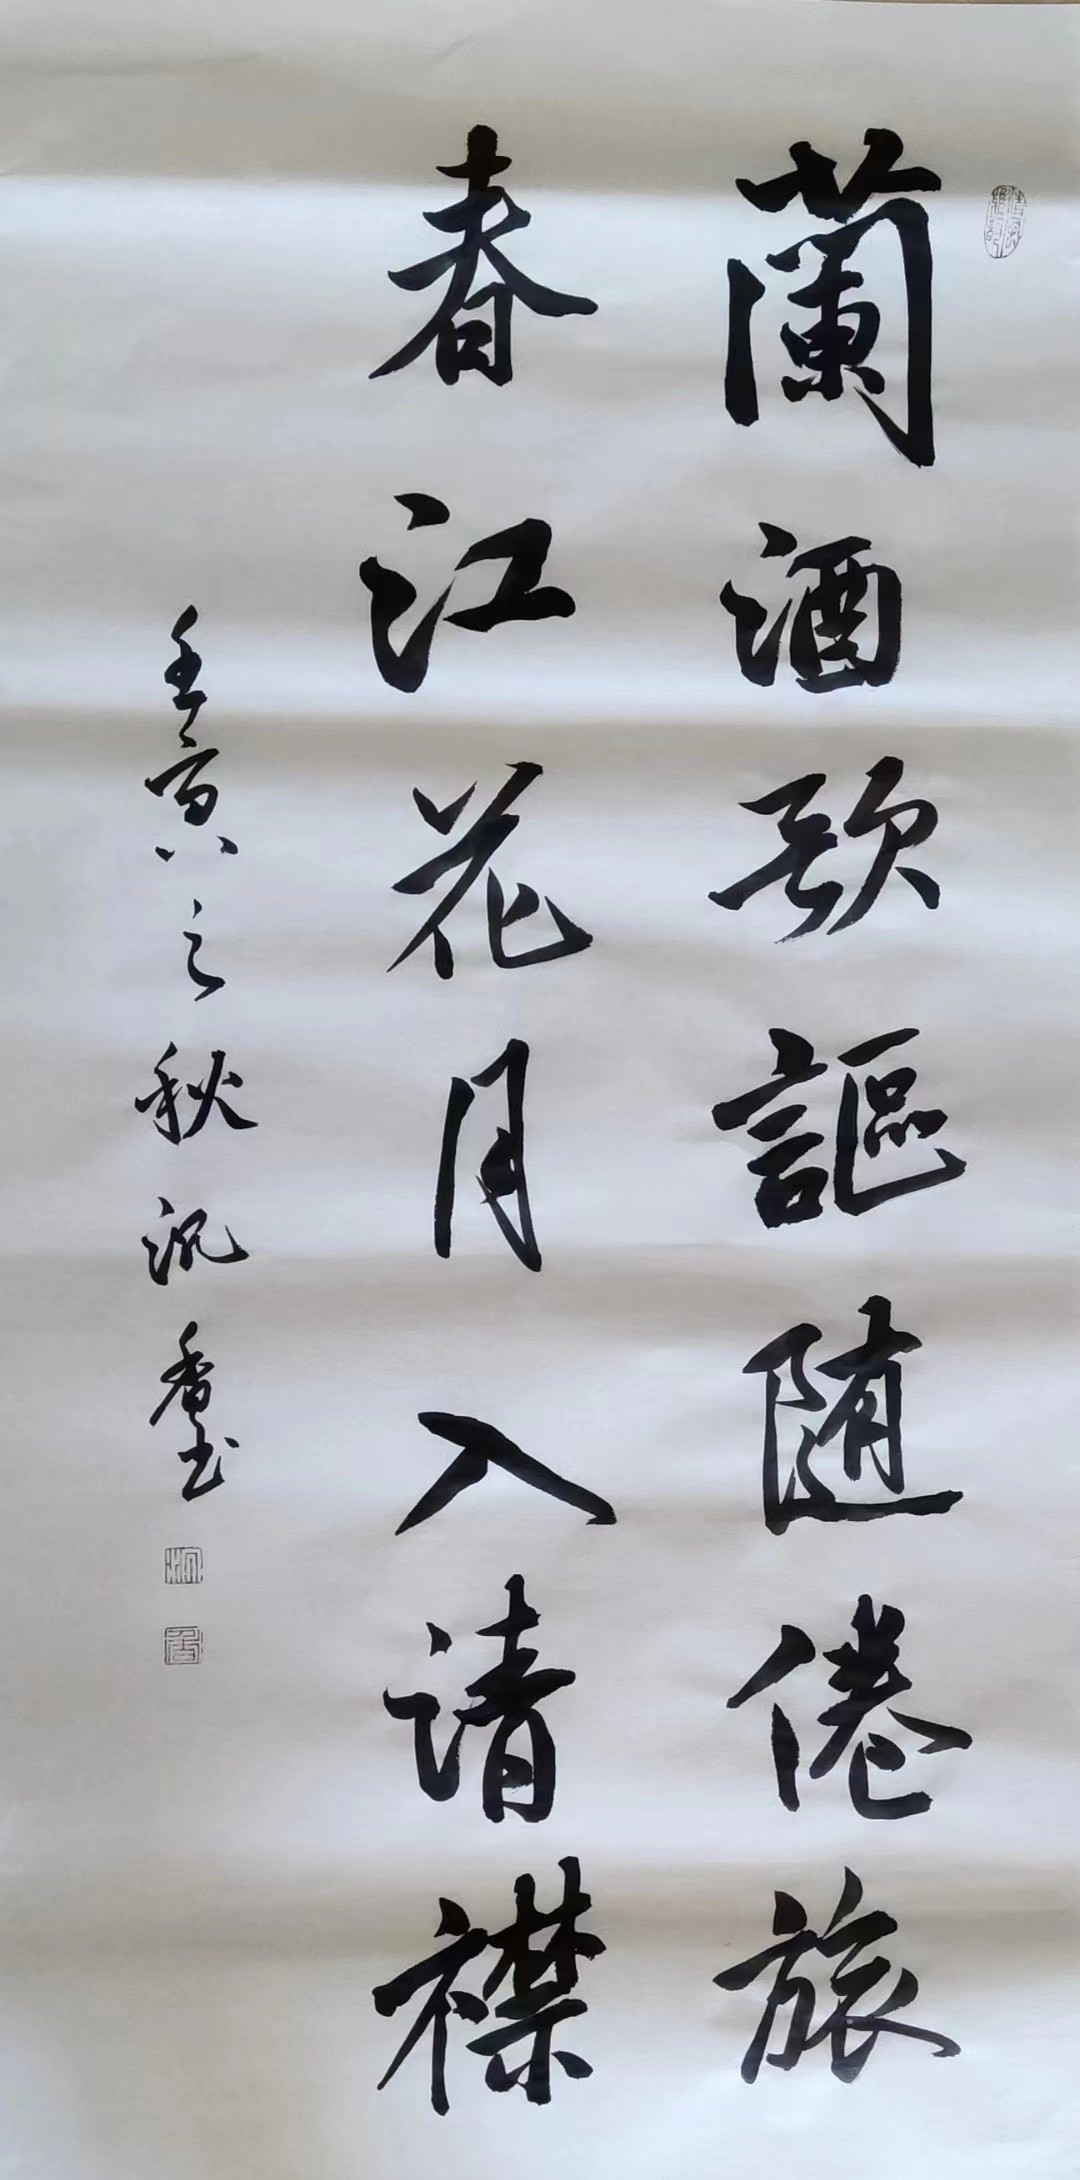 蘭酒歌謳随倦旅
春江花月入清襟
壬寅之秋沉香书